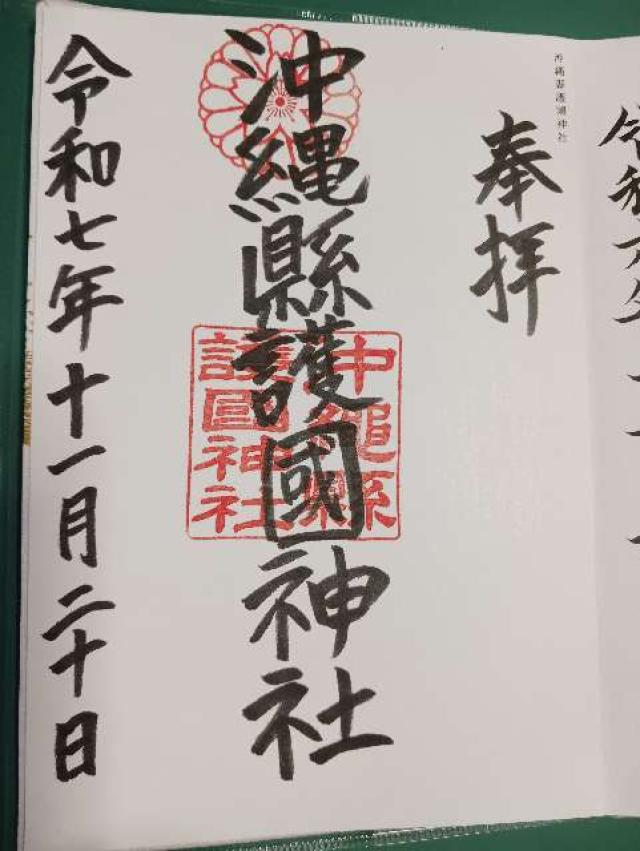 沖縄縣護國神社
奉拝
沖縄縣護國神社
沖繩縣
護國神社
令和七年十一月二十日